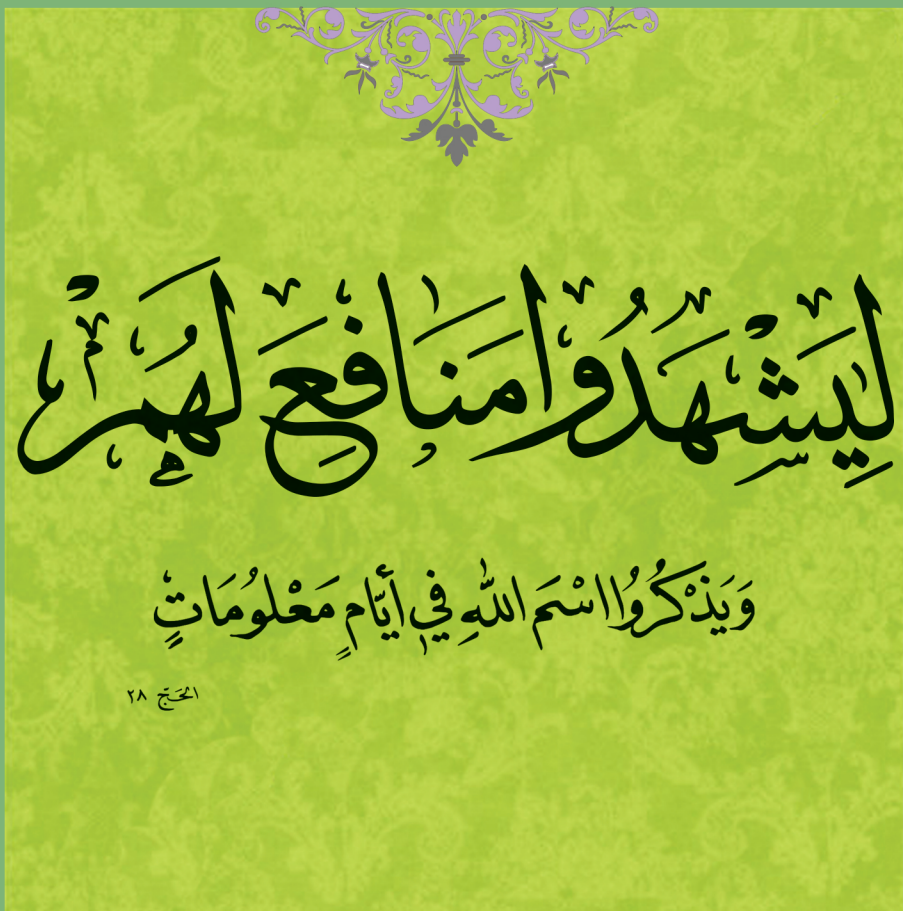 لِيَشْهَدُوا مَنَافِعَ لَهُمْ
وَيَذْكُرُوا اسْمَ اللَّهِ فِي أَيَّامٍ مَعْلُومَاتٍ
الحَجّ ٢٨